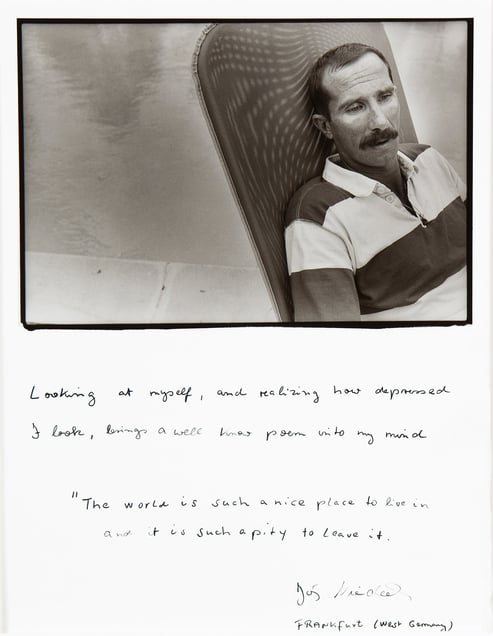 Looking at myself, and realizing how depressed
I look, brings a well know poem into my mind
"The world is such a nice place to live in
and it is such a pity to leave it.
FRANKfurt (West Germany)